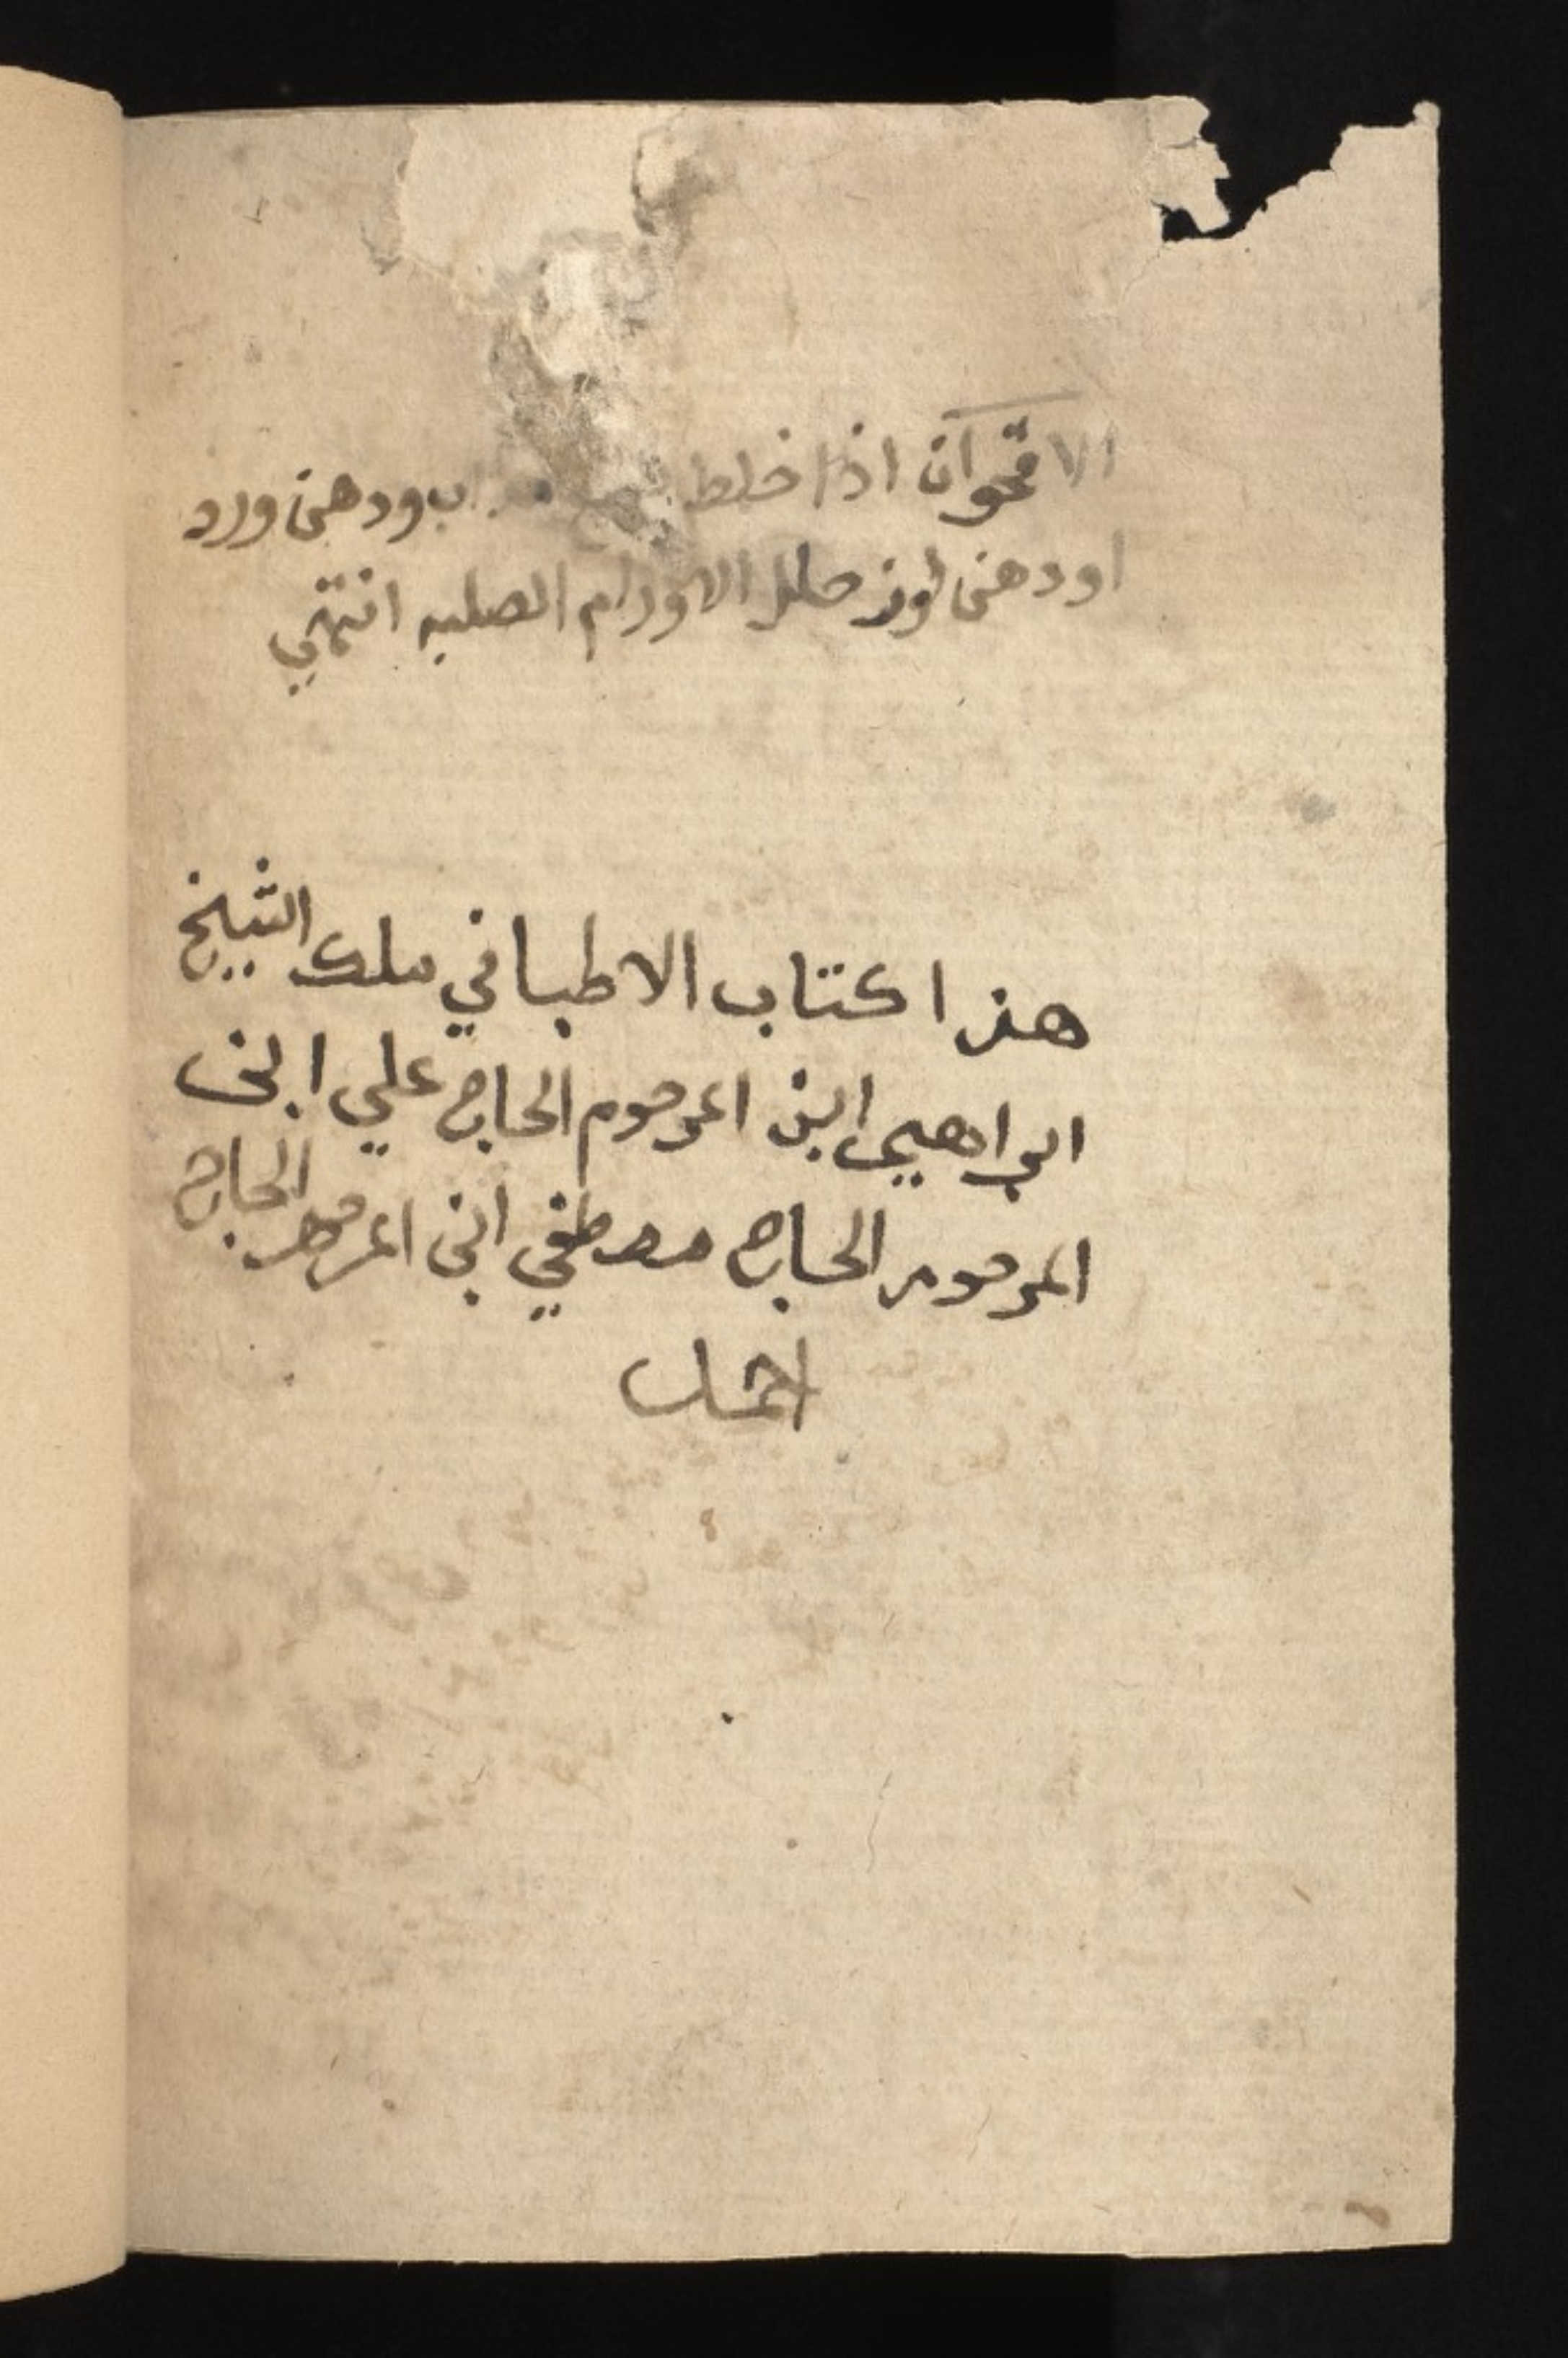 الاقحوان اذا خلط ودهن ورد
اودهن لوز حلل الاورام الصلبه انتهي
هذا كتاب الاطبا في ملك الشيخ
ابراهيم ابن المرحوم الحاج علي ابن
المرحوم الحاج مصطفي ابن المرحوم الحاج
احمد